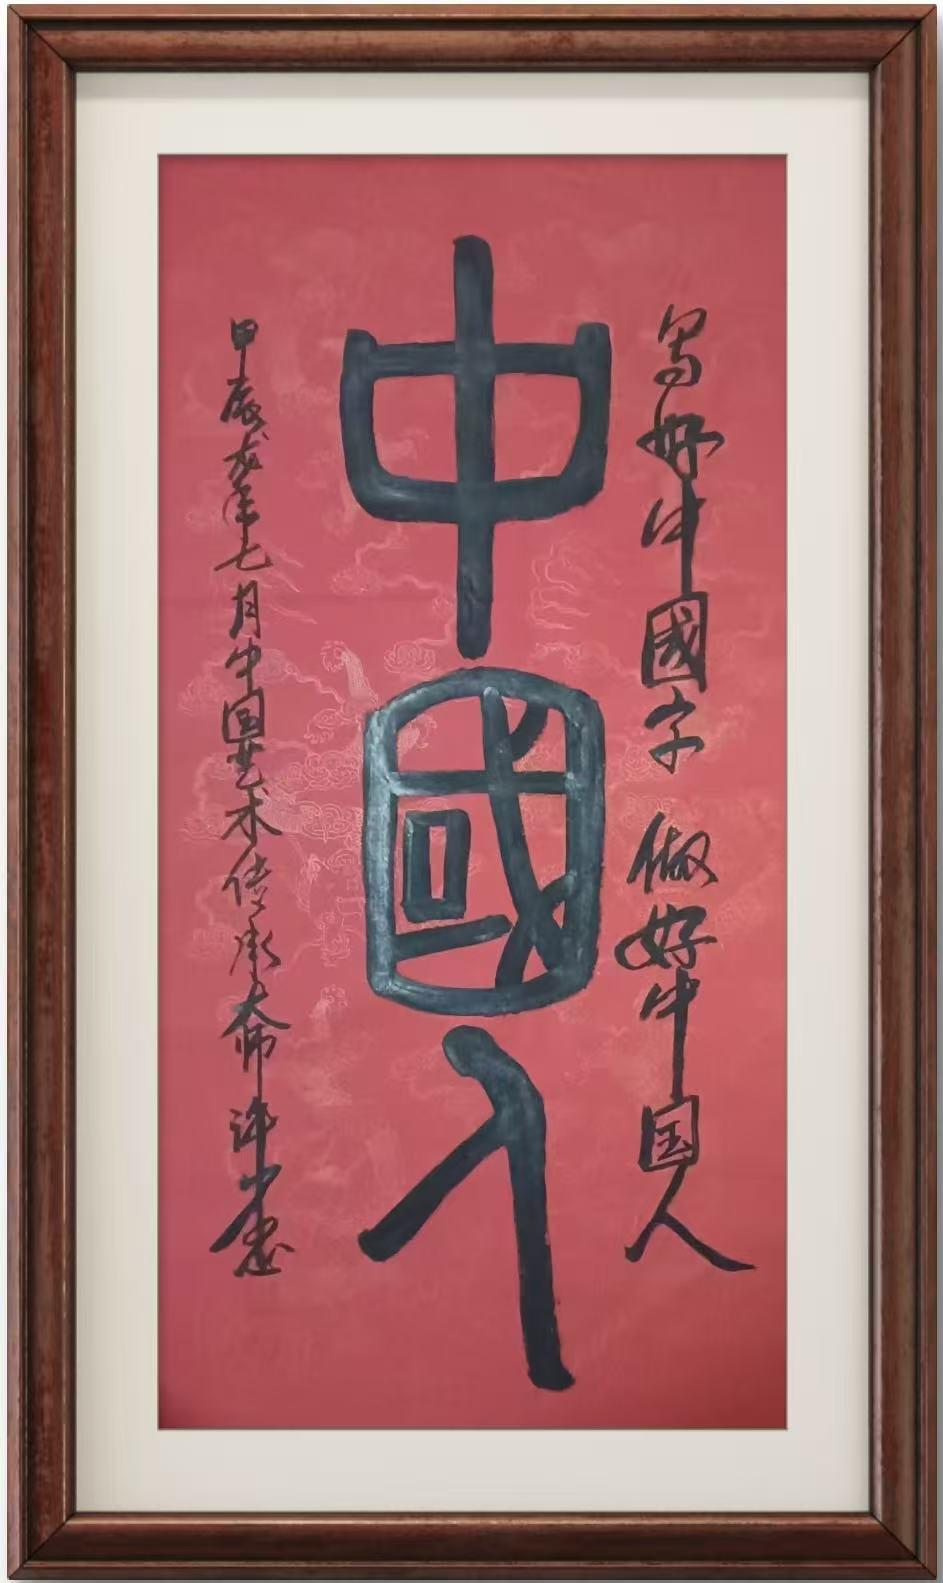 写好中國字 做好中国人
中國人
甲辰龙年七月中国艺术传承大师许小忠